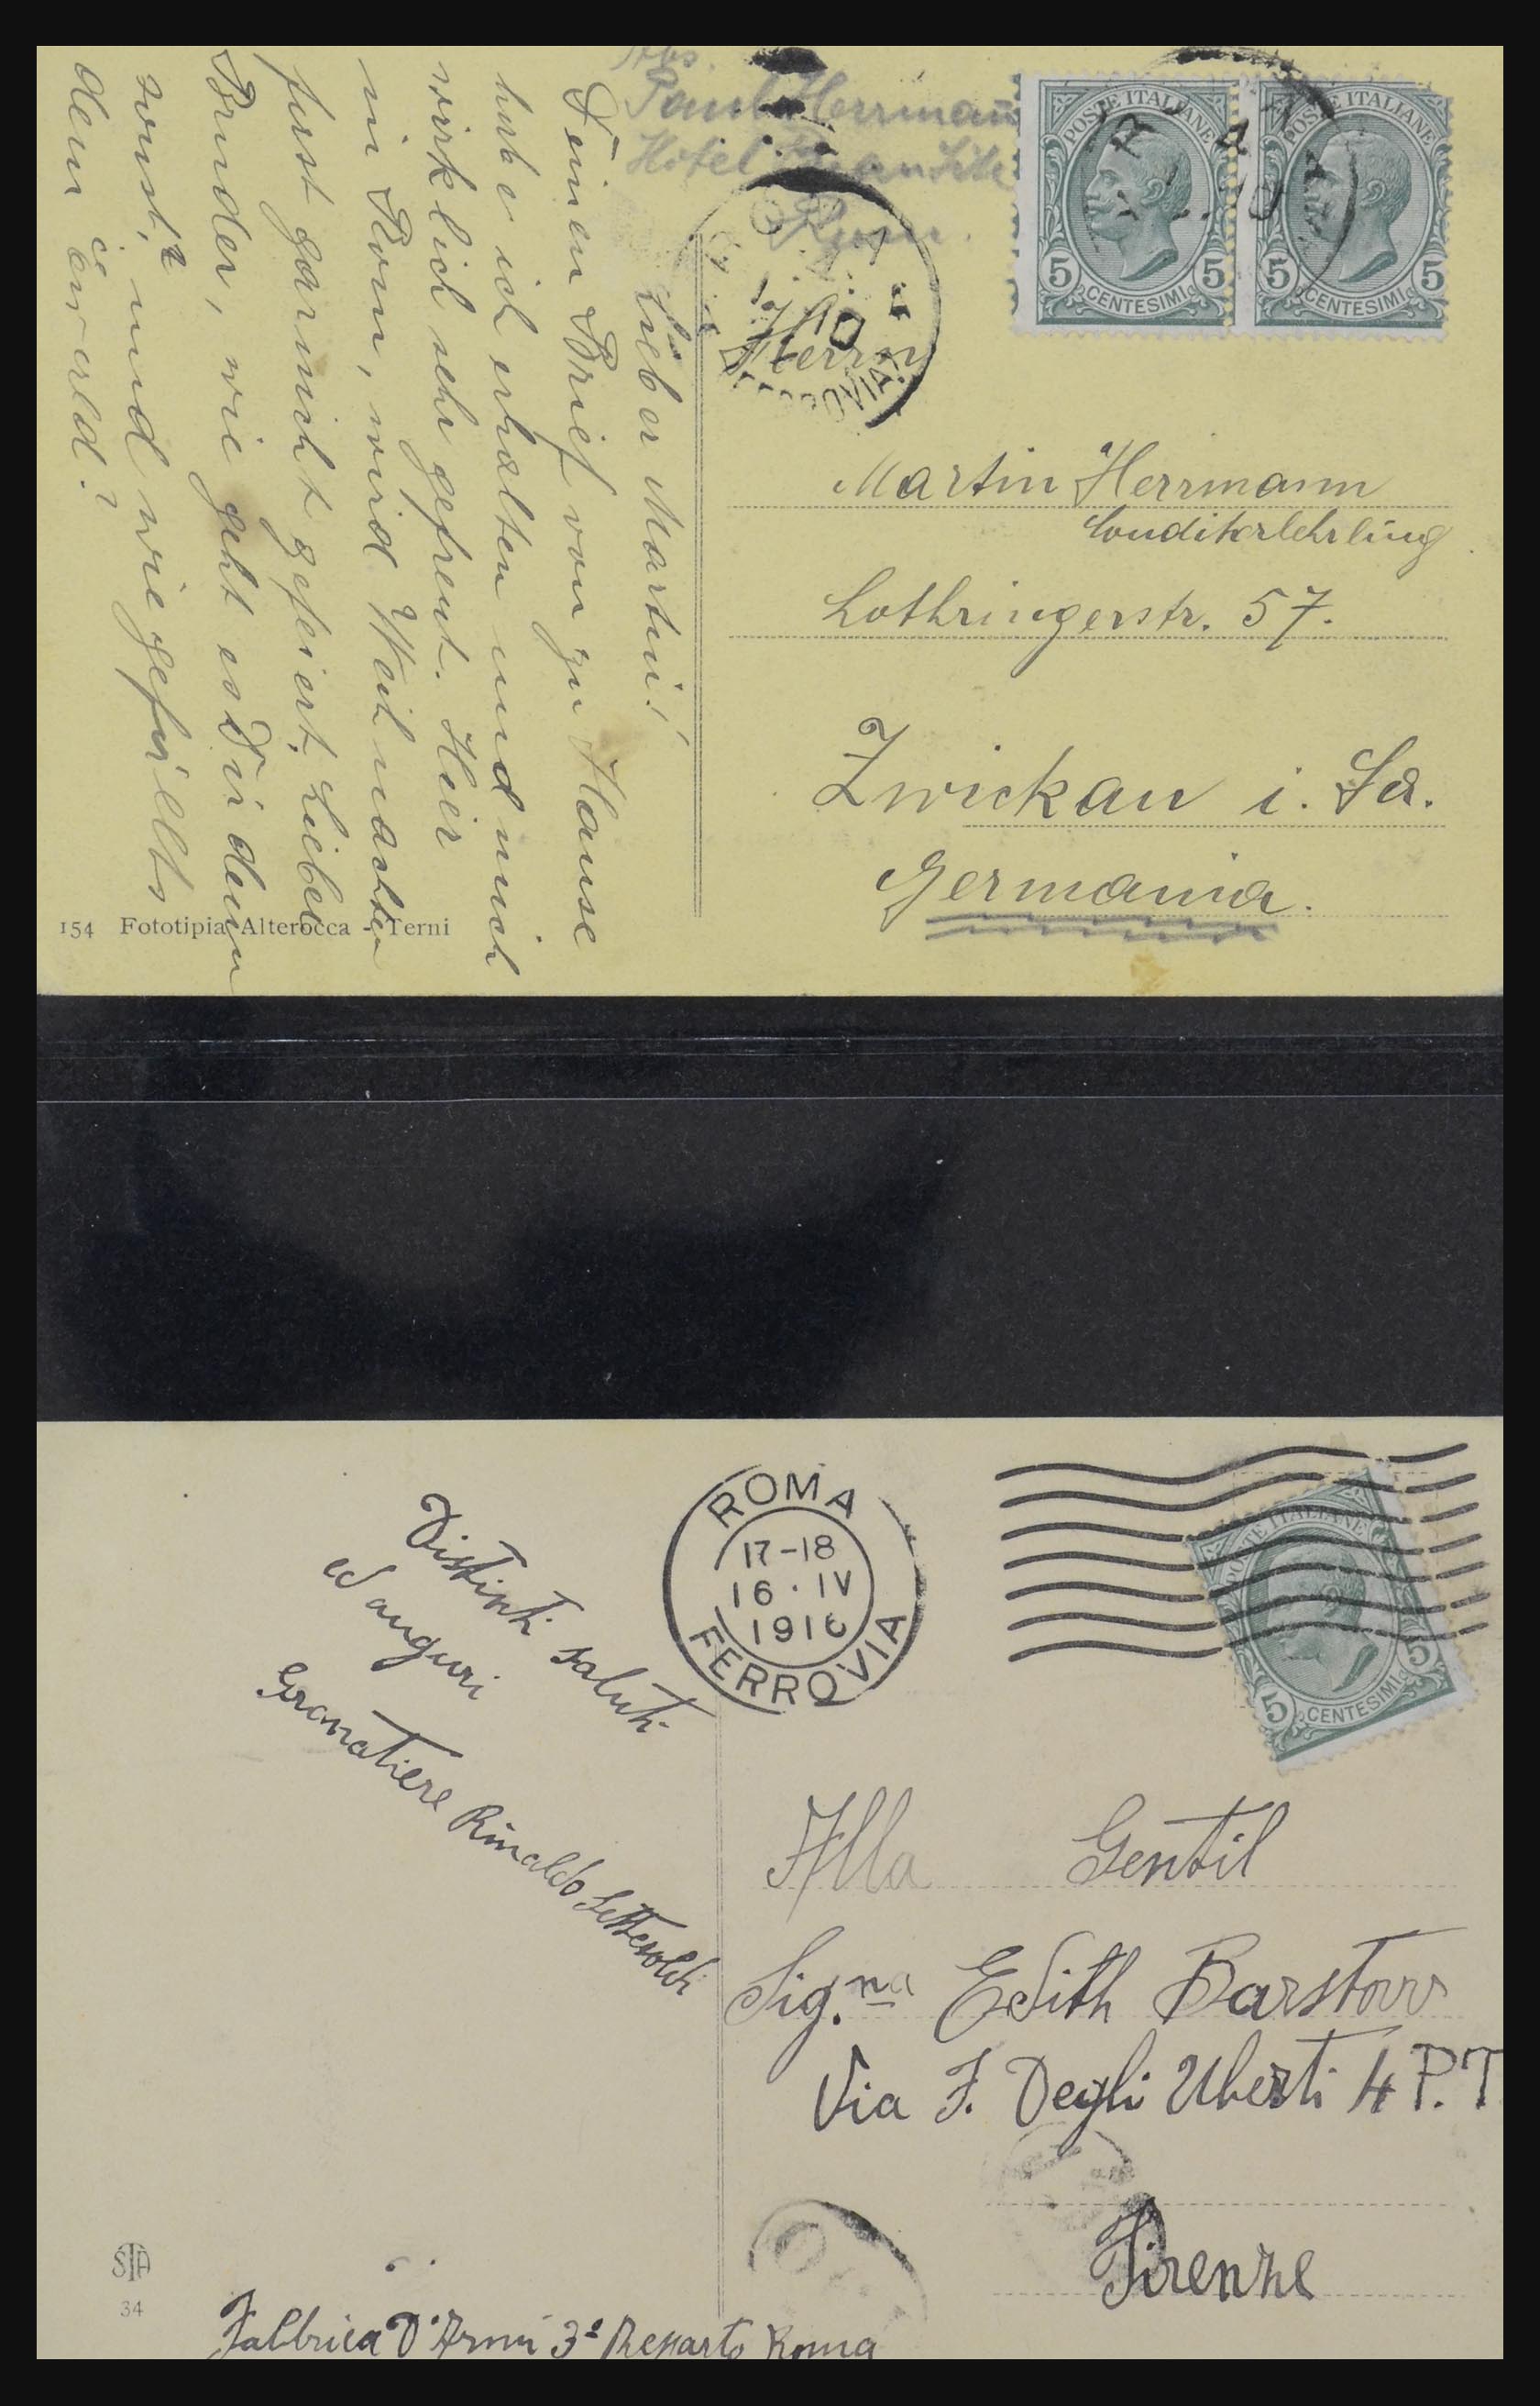 Abs.
Paul Herrmann
Hotel
Rom.
POSTE ITALIANE
5 CENTESIMI 5
POSTE ITALIANE
5 CENTESIMI 5
10
FERROVIA
Herrn
Martin Herrmann
Conditorlehrling
Lothringerstr. 57.
Zwickau i. Sa.
Germania.
Lieber Martin!
Deinen Brief von zu Hause
habe ich erhalten und mich
wirklich sehr gefreut. Hier
in Rom, wird Weihnachten
fast garnicht gefeiert. Lieber
Bruder, wie geht es Dir denn
sonst, und wie gefällts
dem
154 Fototipia Alterocca - Terni
ROMA
17-18
16 · IV
1916
FERROVIA
POSTE ITALIANE
5 CENTESIMI 5
Distinti saluti
ed auguri
Granatiere Rinaldo Setteсoldi
Alla Gentil
Sig.na Edith Barstow
Via F. Degli Uberti 4 P.T
Firenze
STA
34
Fabbrica D'Armi 3º Reparto Roma